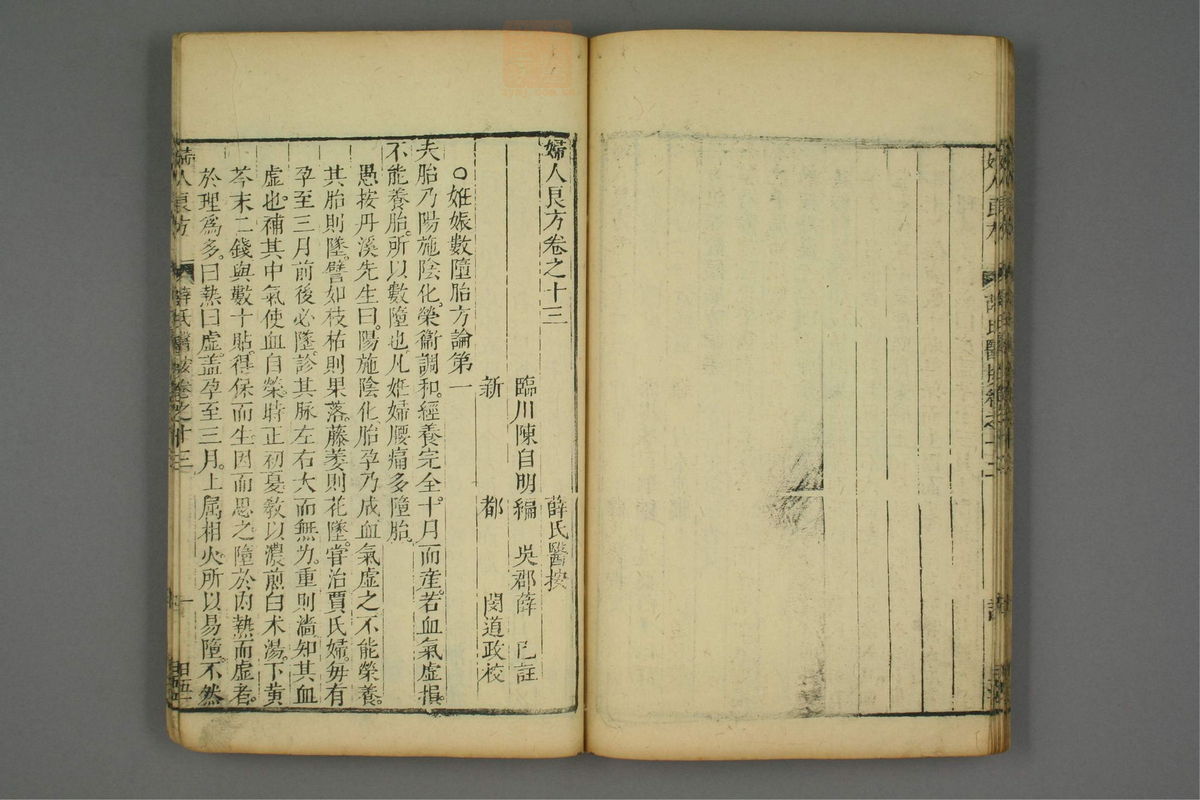 婦人良方卷之十三
薛氏醫按
臨川陳自明編 吳郡薛 己註
新 都 閔道政校
○姙娠數墮胎方論第一
夫胎乃陽施陰化。榮衞調和。經養完全。十月而產。若血氣虛損。
不能養胎。所以數墮也。凡姙婦腰痛多墮胎。
愚按丹溪先生曰。陽施陰化。胎孕乃成。血氣虛乏。不能榮養。
其胎則墜。譬如枝枯則果落。藤萎則花墜。甞治賈氏婦。毎有
孕至三月前後必墜。診其脉左右大而無力。重則濇。知其血
虛也。補其中氣使血自榮。時正初夏。敎以濃煎白术湯。下黄
芩末二錢。與數十貼。得保而生。因而思之。墮於内熱而虛者。
於理爲多。曰熱曰虛。蓋孕至三月。上属相火。所以易墮。不然
婦人良方 薛氏醫按卷之十三 一